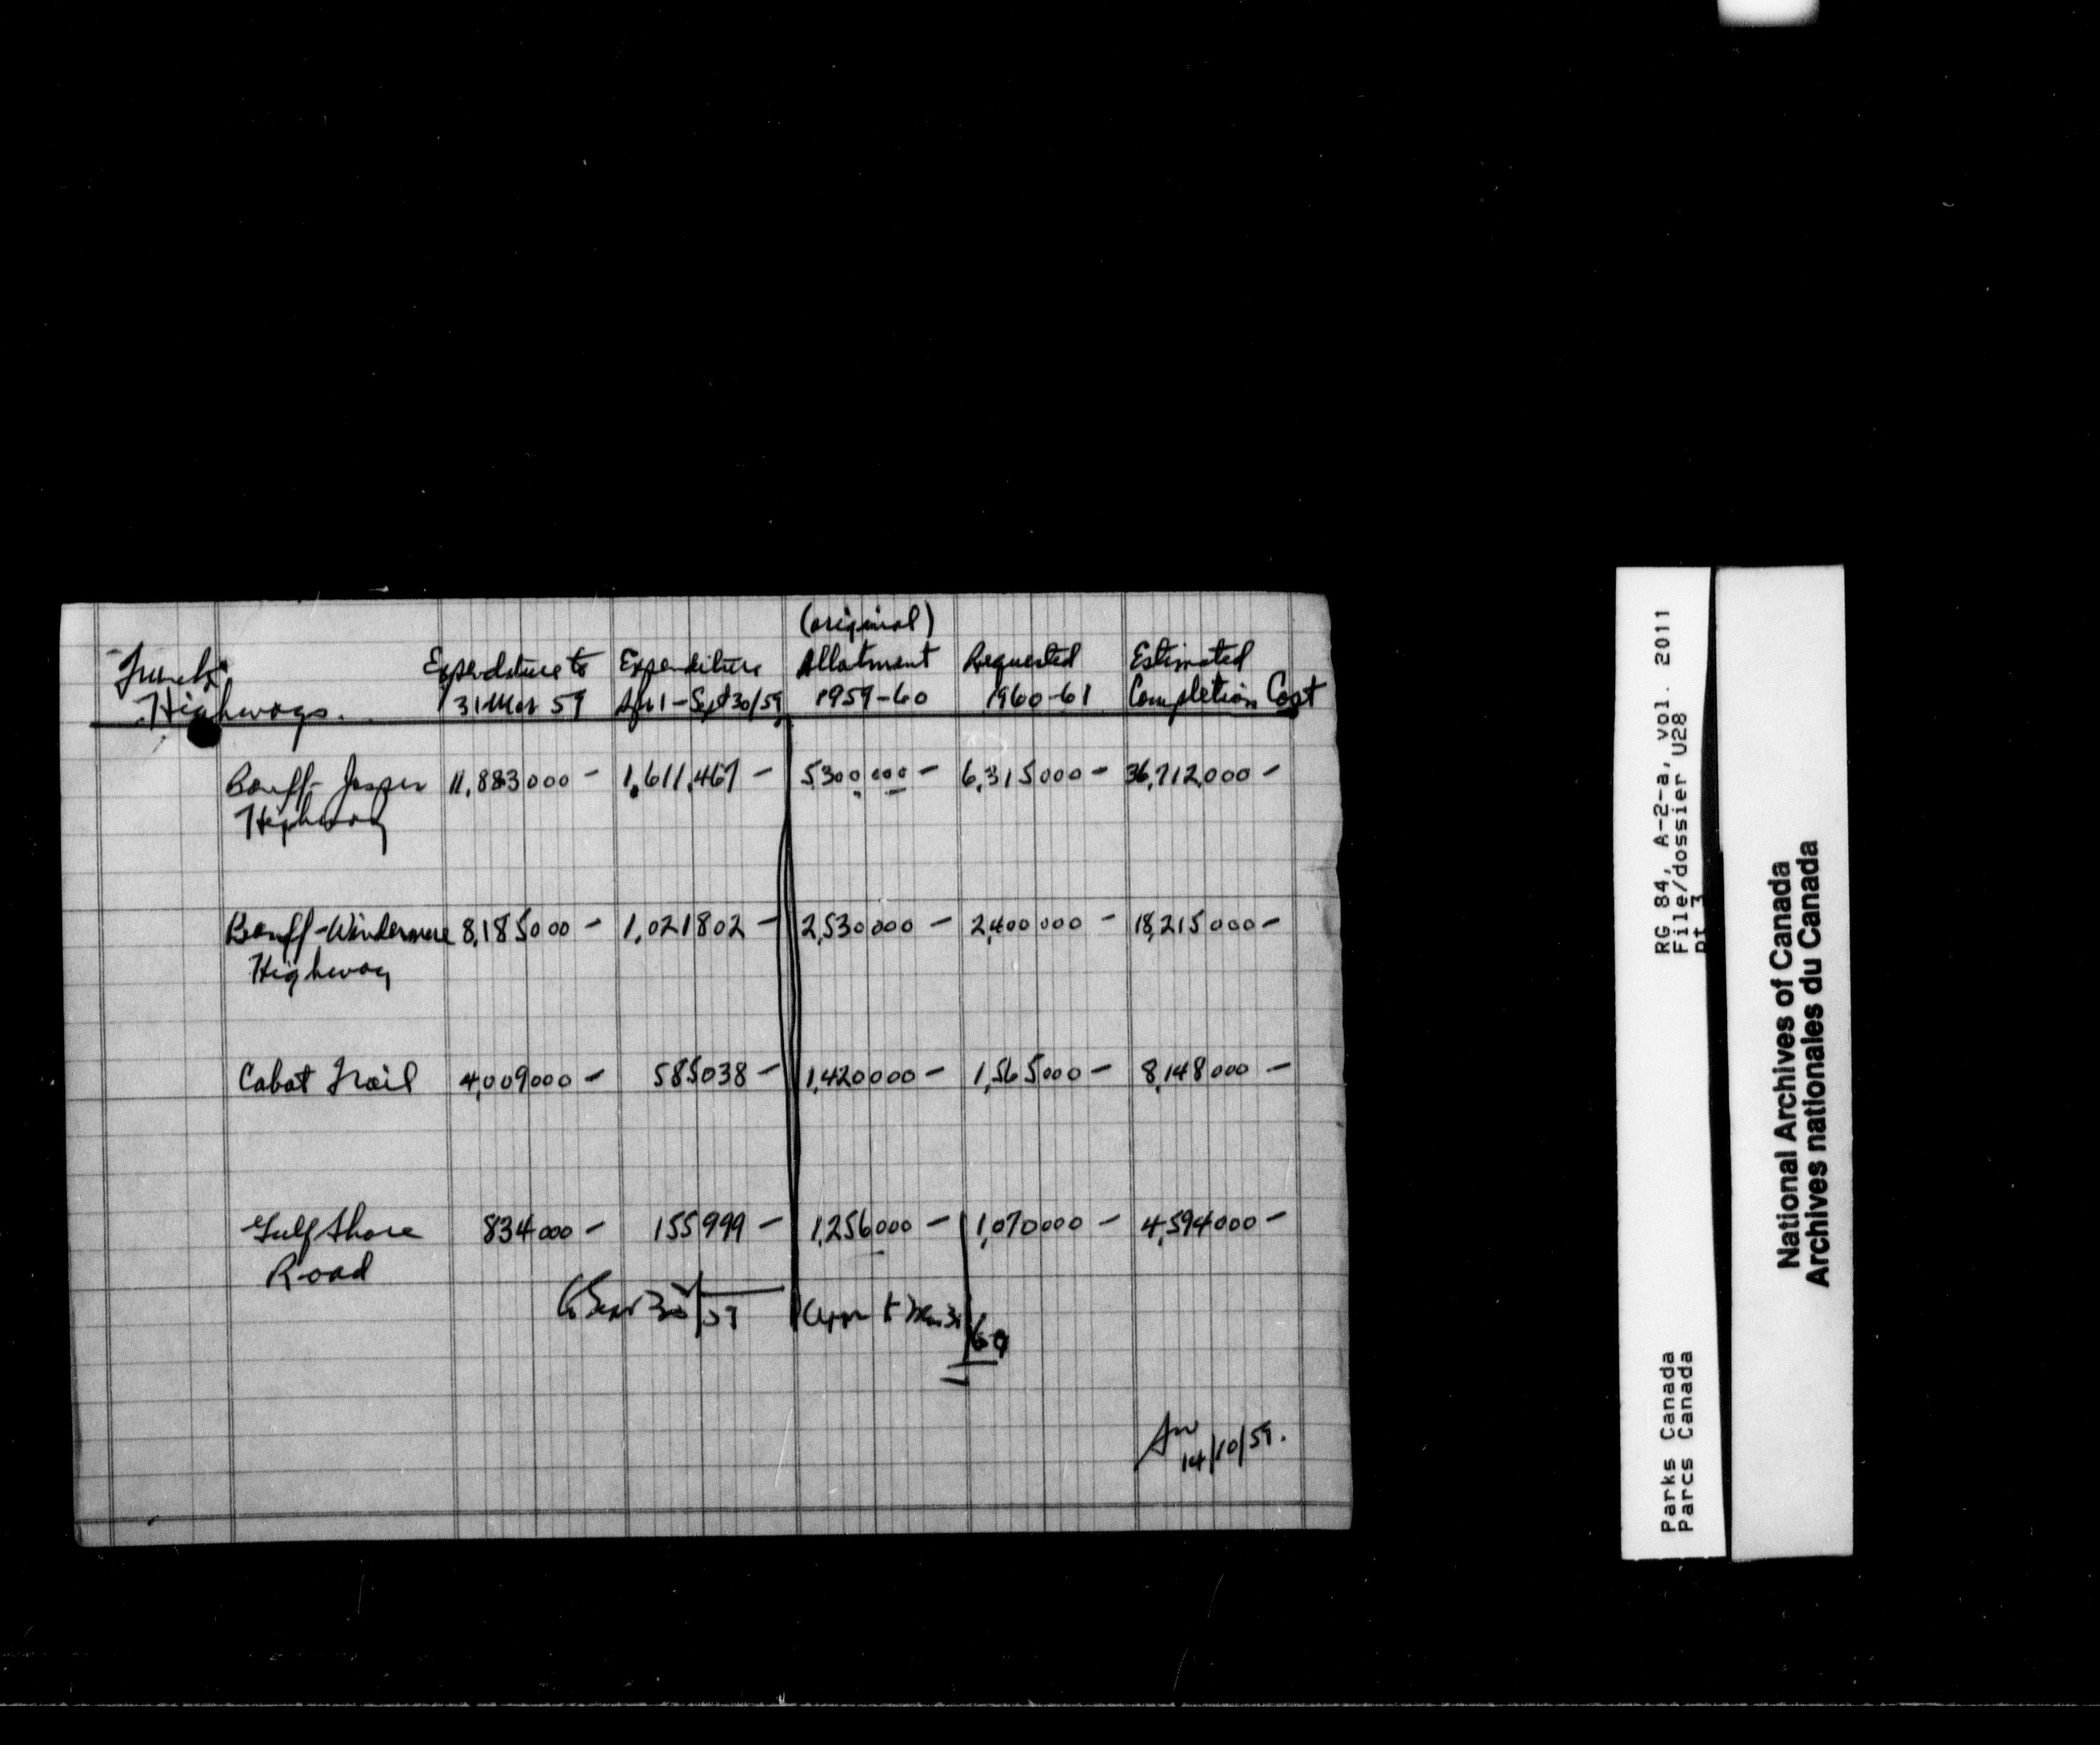 (original)
"Trunk" Expenditure to Expenditure Allotment Requested Estimated
Highways. 31 Mar 59 Apr 1 - Sept 30/59 1959-60 1960-61 Completion Cost
Banff-Jasper 11,883000 - 1,611,467 - 5,300,000 - 6,315000 - 36,712,000 -
Highway
Banff-Windermere 8,185000 - 1,021802 - 2,530000 - 2,400000 - 18,215000 -
Highway
Cabot Trail 4,009000 - 585038 - 1,420000 - 1,565000 - 8,148000 -
Gulf Shore 834000 - 155999 - 1,256000 - 1,070000 - 4,594000 -
Road
to Sept 30/59 Mar 31/60
14/10/59.
RG 84, A-2-a, vol. 2011
File/dossier U28
pt 3
Parks Canada
Parcs Canada
National Archives of Canada
Archives nationales du Canada